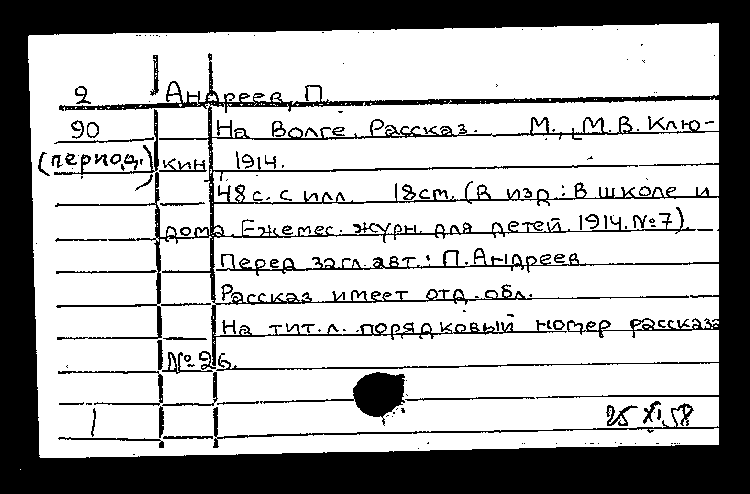 2 Андреев, П.
90 На Волге. Рассказ. М., [М.В. Клю-
(период.) кин], 1914.
48 с. с илл. 18 см. (В изд.: В школе и
дома. Ежемес. журн. для детей. 1914. №7).
Перед загл. авт.: П. Андреев
Рассказ имеет отд. обл.
На тит. л. порядковый номер рассказа
№ 26.
1 25 XI.58